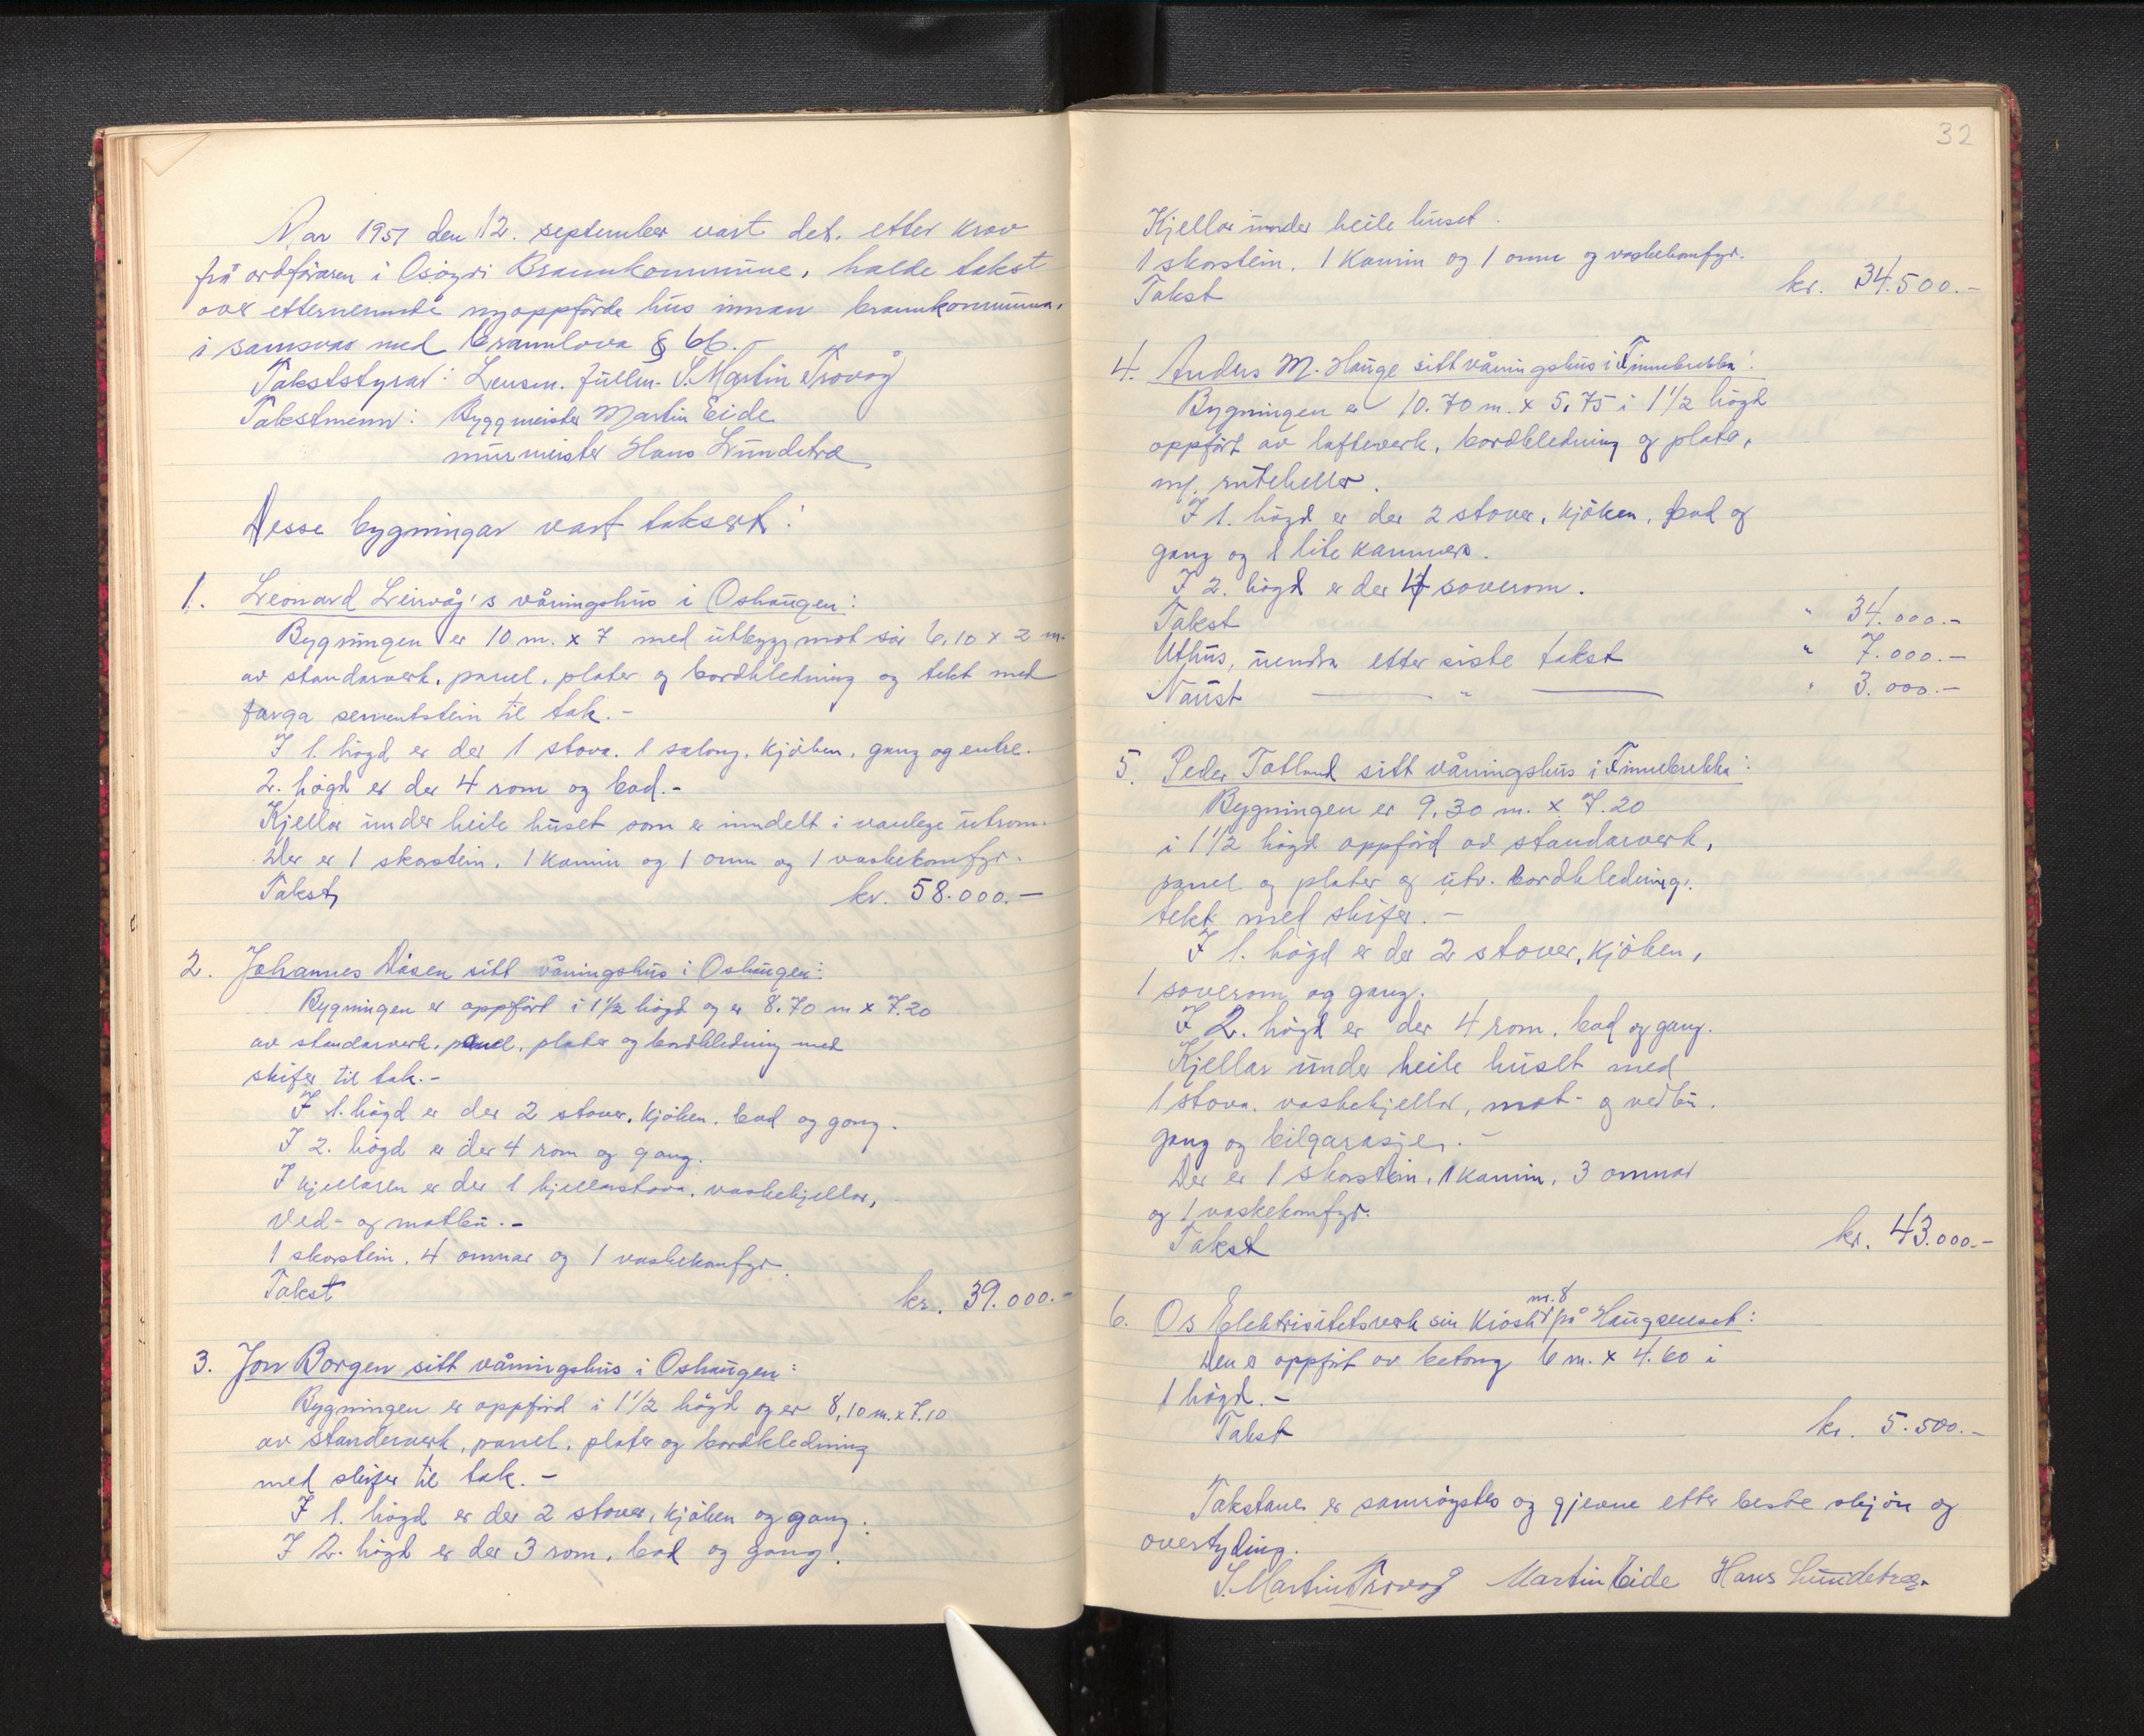 Aar 1951 den 12. september vart det, etter krav
frå ordføraren i Osøyri Brannkommune, halde takst
over etternemnde nyoppførde hus innan brannkommuna,
i samsvar med brannlova § 66.-
Takststyrar: Lensm. fullm. S. Martin Trovåg
Takstmenn: Byggmeister Martin Eide
murmeister Hans Lundetræ
Desse bygningar vart taksert:
1. Leonard Leirvåg's våningshus i Oshaugen:
Bygningen er 10 m. x 7 med utbygg mot sør 6,10 x 2 m.
av standarverk, panel, plater og bordkledning og tekt med
farga sementstein til tak.-
I 1. høgd er der 1 stova, 1 salong, kjøken, gang og entre.
2. høgd er der 4 rom og bad.-
Kjellar under heile huset som er inndelt i vanlege utrom.
Der er 1 skorstein, 1 kamin og 1 omn og 1 vaskekomfyr.
Takst kr. 58.000.-
2. Johannes Døsen sitt våningshus i Oshaugen:
Bygningen er oppført i 1 1/2 høgd og er 8.70 m x 7.20
av standarverk, panel, plater og bordkledning med
skifer til tak.-
I 1. høgd er der 2 stover, kjøken, bad og gang.
I 2. høgd er der 4 rom og gang.
I kjellaren er der 1 kjellarstova, vaskekjellar,
Ved- og matbu.-
1 skorstein, 4 omnar og 1 vaskekomfyr.
Takst kr. 39.000.-
3. Jon Borgen sitt våningshus i Oshaugen:
Bygningen er oppførd i 1 1/2 høgd og er 8,10 m. x 7.10
av standerverk, panel, plater og bordkledning
med skifer til tak.-
I 1. høgd er der 2 stover, kjøken og gang.
I 2. høgd er der 3 rom, bad og gang.
32
Kjellar under heile huset.
1 skorstein, 1 Kamin og 1 omn og vaskekomfyr.
Takst kr. 34.500.-
4. Anders M. Hauge sitt våningshus i Finnebrekka:
Bygningen er 10.70 m. x 5,75 i 1 1/2 høgd
oppført av lafteverk, bordkledning og plata,
m/. ruteheller.
I 1. høgd er der 2 stover, kjøken, bad og
gang og 1 lite kammers.
I 2. høgd er der 4 soverom.
Takst " 34.000.-
Uthus, uendra etter siste takst " 7.000.-
Naust — " — " 3.000.-
5. Peder Tøtland sitt våningshus i Finnebrekka:
Bygningen er 9.30 m. x 7.20
i 1 1/2 høgd oppførd av standarverk,
panel og plater og utv. bordkledning,
tekt med skifer.-
I 1. høgd er der 2 stover, kjøken,
1 soverom og gang.
I 2. høgd er der 4 rom, bad og gang.
Kjellar under heile huset med
1 stova, vaskekjellar, mat- og vedbu,
gang og bilgarasje.-
Der er 1 skorstein, 1 kamin, 3 omnar
og 1 vaskekomfyr.
Takst kr. 43.000.-
6. Os Elektrisitetsverk sin Kiosk nr. 8 på Haugsneset:
Den er oppført av betong 6 m. x 4.60 i
1 høgd.-
Takst kr. 5.500.-
Takstane er samrøystes og gjevne etter beste skjøn og
overtyding.
S. Martin Trovåg Martin Eide Hans Lundetræ